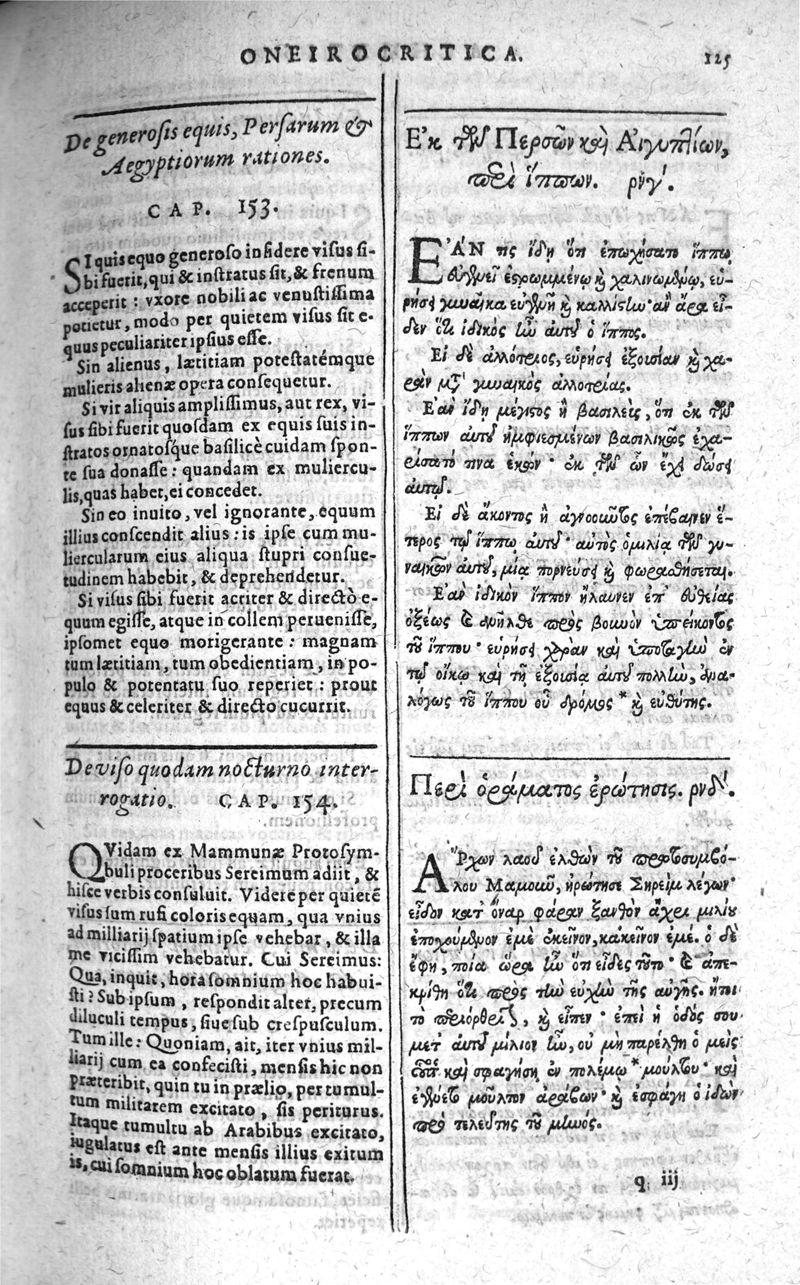 ONEIROCRITICA.
125
De generosis equis, Persarum &
Aegyptiorum rationes.
CAP. 153.
SI quis equo generoso insidere visus si-
bi fuerit, qui & instratus sit, & frenum
acceperit: vxore nobili ac venustissima
potietur, modo per quietem visus sit e-
quus peculiariter ipsius esse.
Sin alienus, lætitiam potestatémque
mulieris alienæ opera consequetur.
Si vir aliquis amplissimus, aut rex, vi-
sus sibi fuerit quosdam ex equis suis in-
stratos ornatósque basilicè cuidam spon-
te sua donasse: quandam ex muliercu-
lis, quas habet, ei concedet.
Sin eo inuito, vel ignorante, equum
illius conscendit alius: is ipse cum mu-
liercularum eius aliqua stupri consue-
tudinem habebit, & deprehendetur.
Si visus sibi fuerit acriter & directò e-
quum egisse, atque in collem peruenisse,
ipsomet equo morigerante: magnam
tum lætitiam, tum obedientiam, in po-
pulo & potentatu suo reperiet: prout
equus & celeriter & directo cucurrit.
De viso quodam nocturno inter-
rogatio. CAP. 154.
QVidam ex Mammunæ Protosym-
buli proceribus Sereimum adiit, &
hisce verbis consuluit. Videre per quietē
visus sum rufi coloris equam, qua vnius
ad milliarij spatium ipse vehebar, & illa
me vicissim vehebatur. Cui Sereimus:
Qua, inquit, hora somnium hoc habui-
sti? Sub ipsum, respondit alter, precum
diluculi tempus, siue sub crespusculum.
Tum ille: Quoniam, ait, iter vnius mil-
liarij cum ea confecisti, mensis hic non
præteribit, quin tu in prælio, per tumul-
tum militarem excitato, sis periturus.
Itaque tumultu ab Arabibus excitato,
iugulatus est ante mensis illius exitum
is, cui somnium hoc oblatum fuerat.
Ἐκ τῶν Περσῶν καὶ Αἰγυπτίων,
περὶ ἵππων. ρνγʹ.
ΕΑΝ τις ἴδῃ ὅτι ἐπωχήσατο ἵππῳ
εὐγενεῖ ἐστρωμμένῳ κ χαλινωμένῳ, εὑ-
ρήσει γυναῖκα εὐγενῆ κ καλλίστην· ἂν ἄρα εἶ-
δεν ὅτι ἰδικὸς ἦν αὐτοῦ ὁ ἵππος.
Εἰ δὲ ἀλλότριος, εὑρήσει ἐξουσίαν κ χα-
ρὰν μετὰ γυναικὸς ἀλλοτρίας.
Ἐὰν ἴδῃ μέγιστος ἢ βασιλεὺς, ὅτι ἐκ τῶν
ἵππων αὐτοῦ ἠμφιεσμένων βασιλικῶς ἐχα-
ρίσατό τινα ἑκών· ἐκ τῶν ὧν ἔχει δώσει
αὐτῷ.
Εἰ δὲ ἄκοντος ἢ ἀγνοοῦντος ἐπέβαινεν ἕ-
τερος τῷ ἵππῳ αὐτοῦ· αὐτὸς ὁμιλίᾳ τῶν γυ-
ναικῶν αὐτοῦ, μίᾳ πορνεύσει κ φωραθήσεται.
Ἐὰν ἰδικὸν ἵππον ἤλαυνεν ἐπ' εὐθείας
ὀξέως καὶ ἀνῆλθε πρὸς βουνὸν ὑπείκοντος
τοῦ ἵππου· εὑρήσει χαρὰν καὶ ὑποταγὴν ἐν
τῷ οἴκῳ καὶ τῇ ἐξουσίᾳ αὐτοῦ πολλὴν, ἀνα-
λόγως τοῦ ἵππου οὗ δρόμος * κ εὐθύτης.
Περὶ ὁράματος ἐρώτησις. ρνδʹ.
ἌΡχων λαοῦ ἐλθὼν τοῦ πρωτοσυμβό-
λου Μαμοῦν, ἠρώτησε Σηρεὶμ λέγων·
εἶδον κατ' ὄναρ φάραν ξανθὸν ἄχρι μιλίου
ἐποχούμενον ἐμὲ ἐκεῖνον, κἀκεῖνον ἐμέ. ὁ δὲ
ἔφη, ποία ὥρα ἦν ὅτι εἶδες τοῦτο· καὶ ἀπε-
κρίθη ὅτι πρὸς τὴν εὐχὴν τῆς αὐγῆς. ἤτοι
τὸ περίορθρον, κ εἶπεν· ἐπεὶ ἡ ὁδός σου
μετ' αὐτοῦ μίλιον ἦν, οὐ μὴ παρέλθῃ ὁ μεὶς
οὗτος καὶ σφαγήσῃ ἐν πολέμῳ * μούλτου· καὶ
ἐγένετο μοῦλτον ἀράβων· κ ἐσφάγη ὁ ἰδὼν
πρὸ τελευτῆς τοῦ μηνός.
q iij